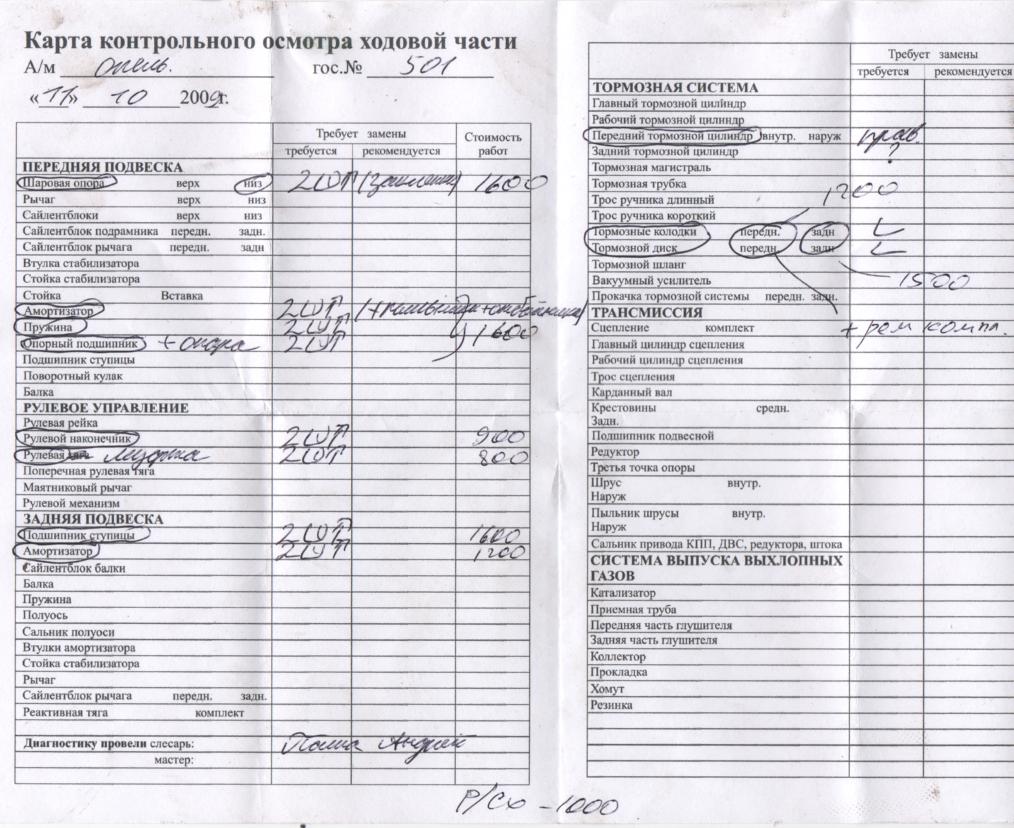 Карта контрольного осмотра ходовой части
А/м Опель. гос.№ 501
«11» 10 2009г.
Требует замены Стоимость работ
требуется рекомендуется
ПЕРЕДНЯЯ ПОДВЕСКА
Шаровая опора верх низ 2шт 1600
Рычаг верх низ
Сайлентблоки верх низ
Сайлентблок подрамника передн. задн.
Сайлентблок рычага передн. задн
Втулка стабилизатора
Стойка стабилизатора
Стойка Вставка
Амортизатор 2шт
Пружина 2шт 1600
Опорный подшипник + опора 2шт
Подшипник ступицы
Поворотный кулак
Балка
РУЛЕВОЕ УПРАВЛЕНИЕ
Рулевая рейка
Рулевой наконечник 2шт 900
Рулевая тяга 2шт 800
Поперечная рулевая тяга
Маятниковый рычаг
Рулевой механизм
ЗАДНЯЯ ПОДВЕСКА
Подшипник ступицы 2шт 1600
Амортизатор 2шт 1200
Сайлентблок балки
Балка
Пружина
Полуось
Сальник полуоси
Втулки амортизатора
Стойка стабилизатора
Рычаг
Сайлентблок рычага передн. задн.
Реактивная тяга комплект
Диагностику провели слесарь: Паша Андрей
мастер:
Р/Сх - 1000
Требует замены
требуется рекомендуется
ТОРМОЗНАЯ СИСТЕМА
Главный тормозной цилиндр
Рабочий тормозной цилиндр
Передний тормозной цилиндр внутр. наруж прав.
Задний тормозной цилиндр ?
Тормозная магистраль
Тормозная трубка
Трос ручника длинный 1200
Трос ручника короткий
Тормозные колодки передн. задн
Тормозной диск передн. задн
Тормозной шланг
Вакуумный усилитель 1500
Прокачка тормозной системы передн. задн.
ТРАНСМИССИЯ
Сцепление комплект + рем компл.
Главный цилиндр сцепления
Рабочий цилиндр сцепления
Трос сцепления
Карданный вал
Крестовины средн.
Задн.
Подшипник подвесной
Редуктор
Третья точка опоры
Шрус внутр.
Наруж
Пыльник шрусы внутр.
Наруж
Сальник привода КПП, ДВС, редуктора, штока
СИСТЕМА ВЫПУСКА ВЫХЛОПНЫХ
ГАЗОВ
Катализатор
Приемная труба
Передняя часть глушителя
Задняя часть глушителя
Коллектор
Прокладка
Хомут
Резинка